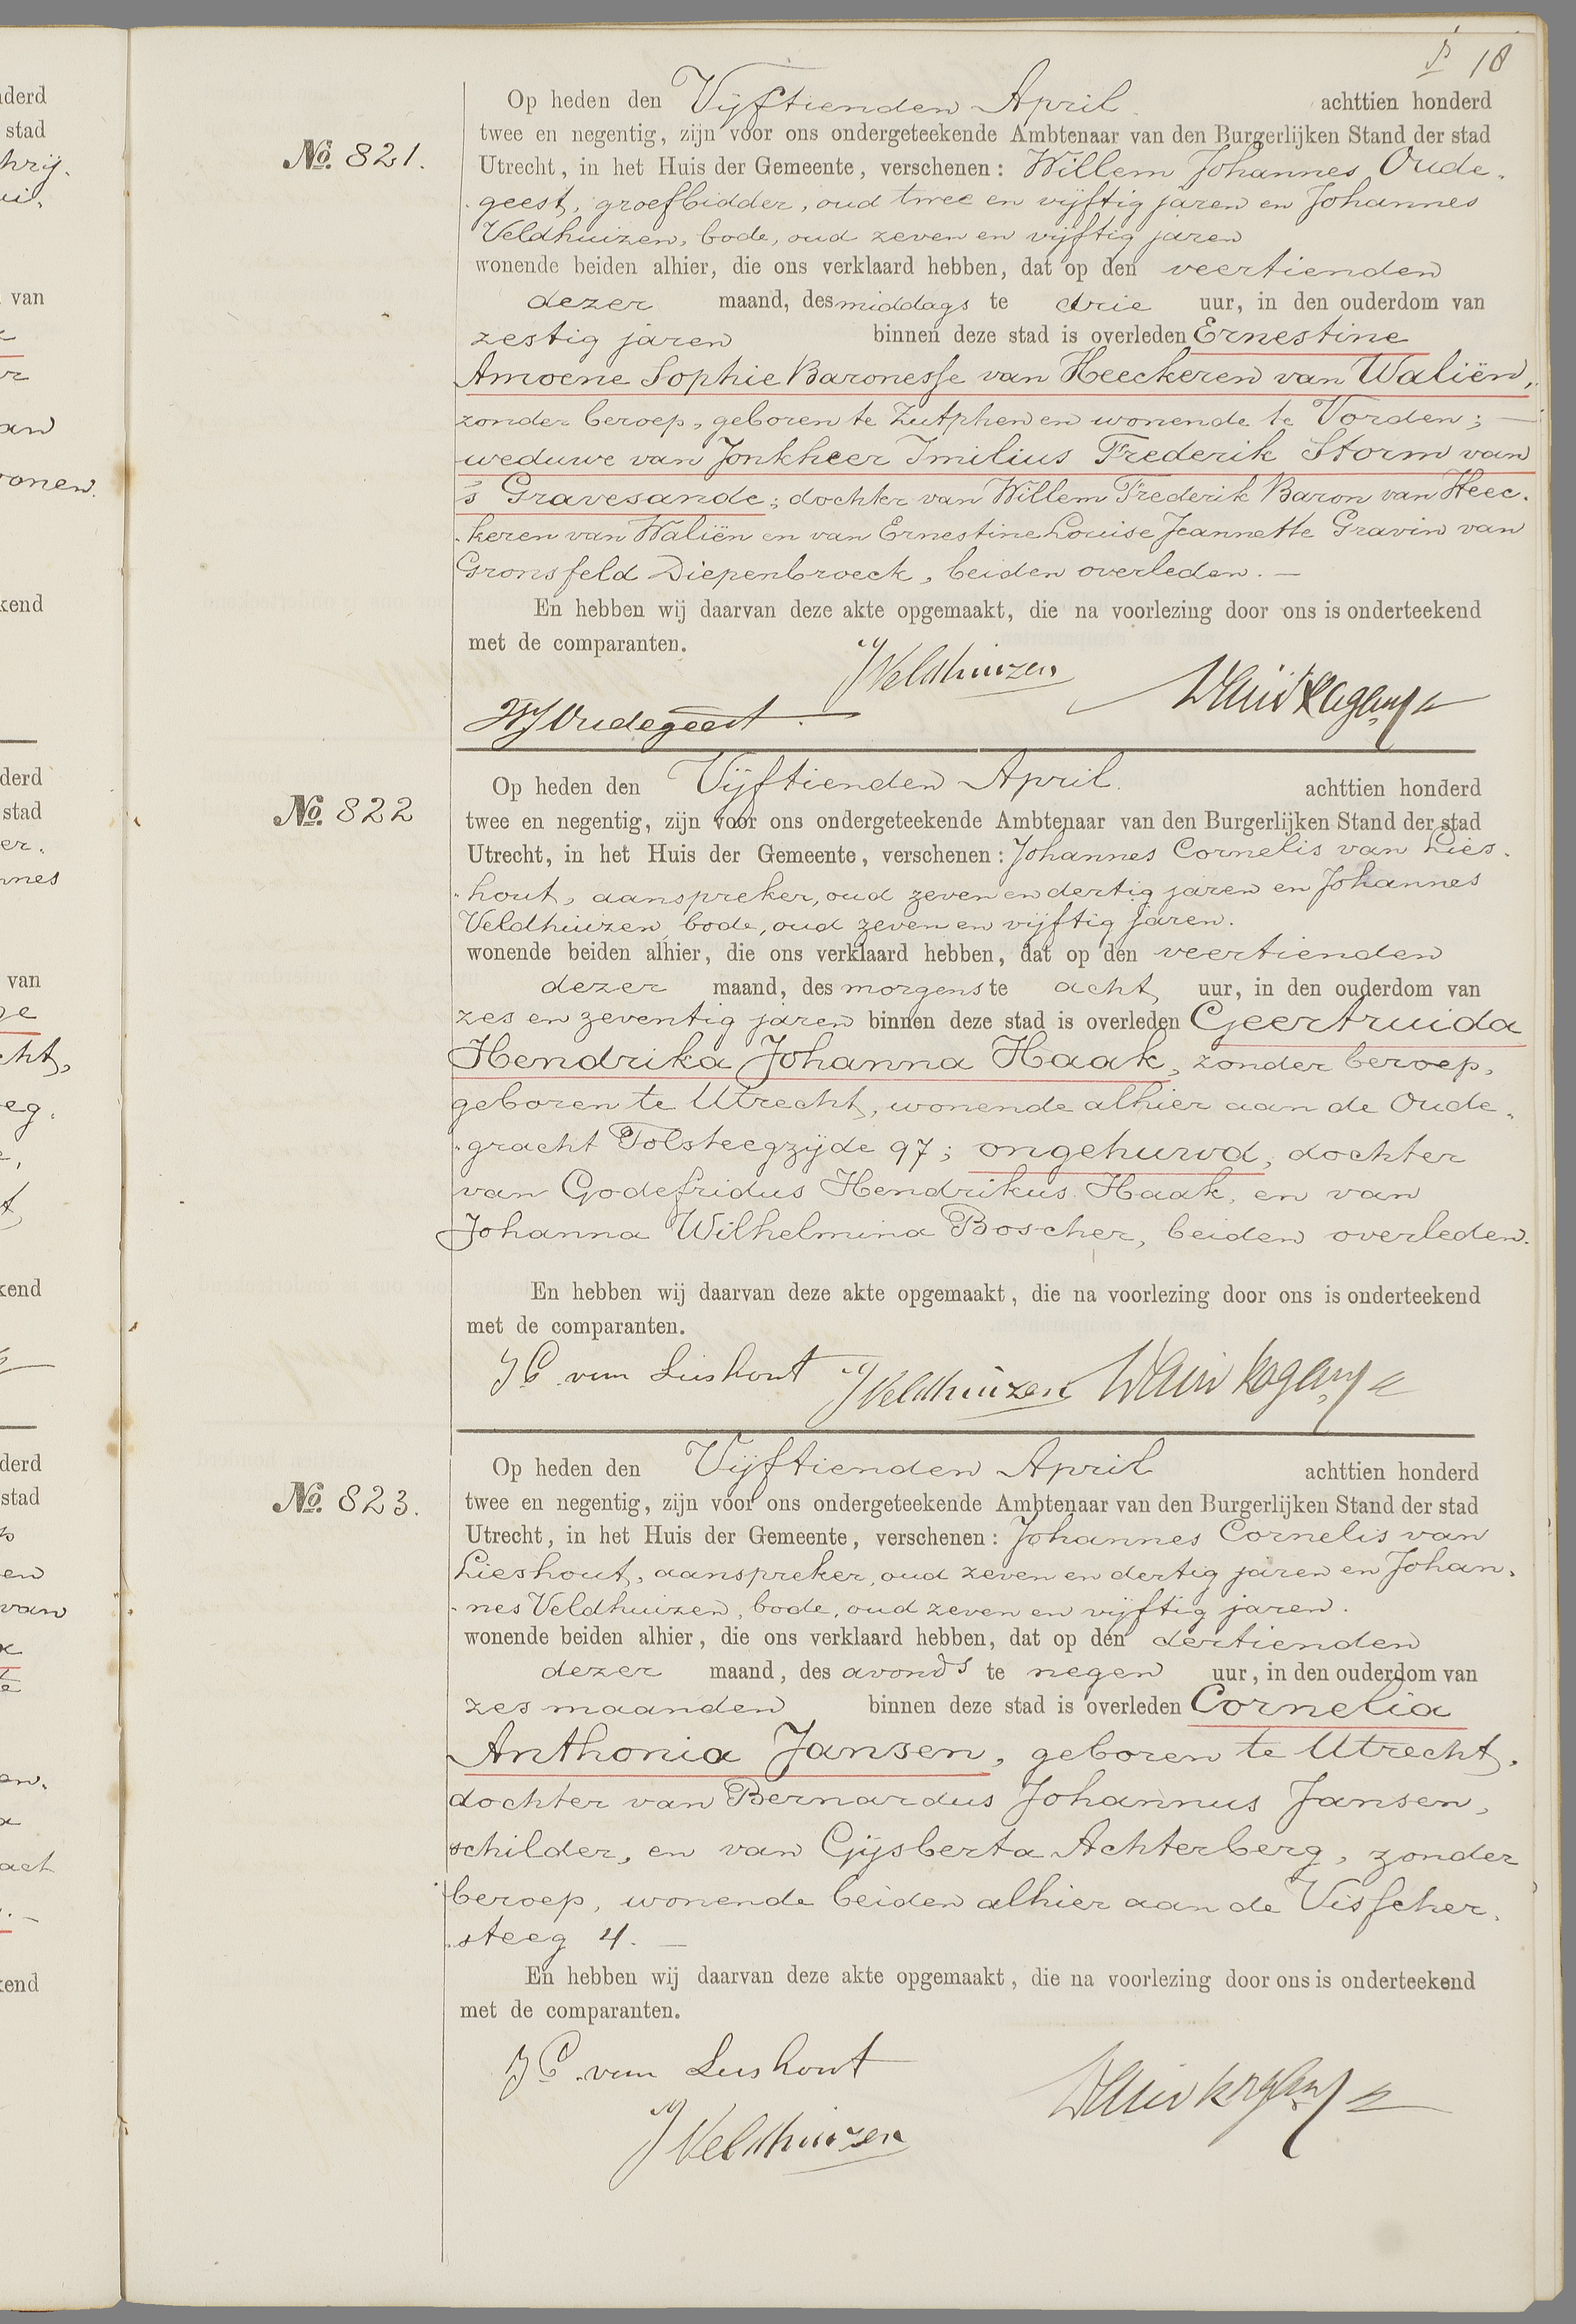 18
No. 821.
Op heden den Vijftienden April achttien honderd
twee en negentig, zijn voor ons ondergeteekende Ambtenaar van den Burgerlijken Stand der stad
Utrecht, in het Huis der Gemeente, verschenen: Willem Johannes Oude-
geest, groefbidder, oud twee en vijftig jaren en Johannes
Veldhuizen, bode, oud zeven en vijftig jaren
wonende beiden alhier, die ons verklaard hebben, dat op den veertienden
dezer maand, des middags te drie uur, in den ouderdom van
zestig jaren binnen deze stad is overleden Ernestine
Amoene Sophie Baronesse van Heeckeren van Waliën,
zonder beroep, geboren te Zutphen en wonende te Vorden;
weduwe van Jonkheer Imilius Frederik Storm van
's Gravesande; dochter van Willem Frederik Baron van Heec-
keren van Waliën en van Ernestine Louise Jeannette Gravin van
Gronsfeld Diepenbroeck, beiden overleden. —
En hebben wij daarvan deze akte opgemaakt, die na voorlezing door ons is onderteekend
met de comparanten.
J Veldhuizen
WJ Oudegeest
No. 822
Op heden den Vijftienden April achttien honderd
twee en negentig, zijn voor ons ondergeteekende Ambtenaar van den Burgerlijken Stand der stad
Utrecht, in het Huis der Gemeente, verschenen: Johannes Cornelis van Lies-
hout, aanspreker, oud zeven en dertig jaren en Johannes
Veldhuizen, bode, oud zeven en vijftig jaren.
wonende beiden alhier, die ons verklaard hebben, dat op den veertienden
dezer maand, des morgens te acht uur, in den ouderdom van
zes en zeventig jaren binnen deze stad is overleden Geertruida
Hendrika Johanna Haak, zonder beroep,
geboren te Utrecht, wonende alhier aan de Oude-
gracht Tolsteegzijde 97; ongehuwd, dochter
van Godefridus Hendrikus Haak, en van
Johanna Wilhelmina Boscher, beiden overleden.
En hebben wij daarvan deze akte opgemaakt, die na voorlezing door ons is onderteekend
met de comparanten.
JC van Lieshout J Veldhuizen
No. 823.
Op heden den Vijftienden April achttien honderd
twee en negentig, zijn voor ons ondergeteekende Ambtenaar van den Burgerlijken Stand der stad
Utrecht, in het Huis der Gemeente, verschenen: Johannes Cornelis van
Lieshout, aanspreker, oud zeven en dertig jaren en Johan-
nes Veldhuizen, bode, oud zeven en vijftig jaren.
wonende beiden alhier, die ons verklaard hebben, dat op den dertienden
dezer maand, des avonds te negen uur, in den ouderdom van
zes maanden binnen deze stad is overleden Cornelia
Anthonia Jansen, geboren te Utrecht,
dochter van Bernardus Johannus Jansen,
schilder, en van Gijsberta Achterberg, zonder
beroep, wonende beiden alhier aan de Visscher-
steeg 4. —
En hebben wij daarvan deze akte opgemaakt, die na voorlezing door ons is onderteekend
met de comparanten.
JC van Lieshout
J Veldhuizen